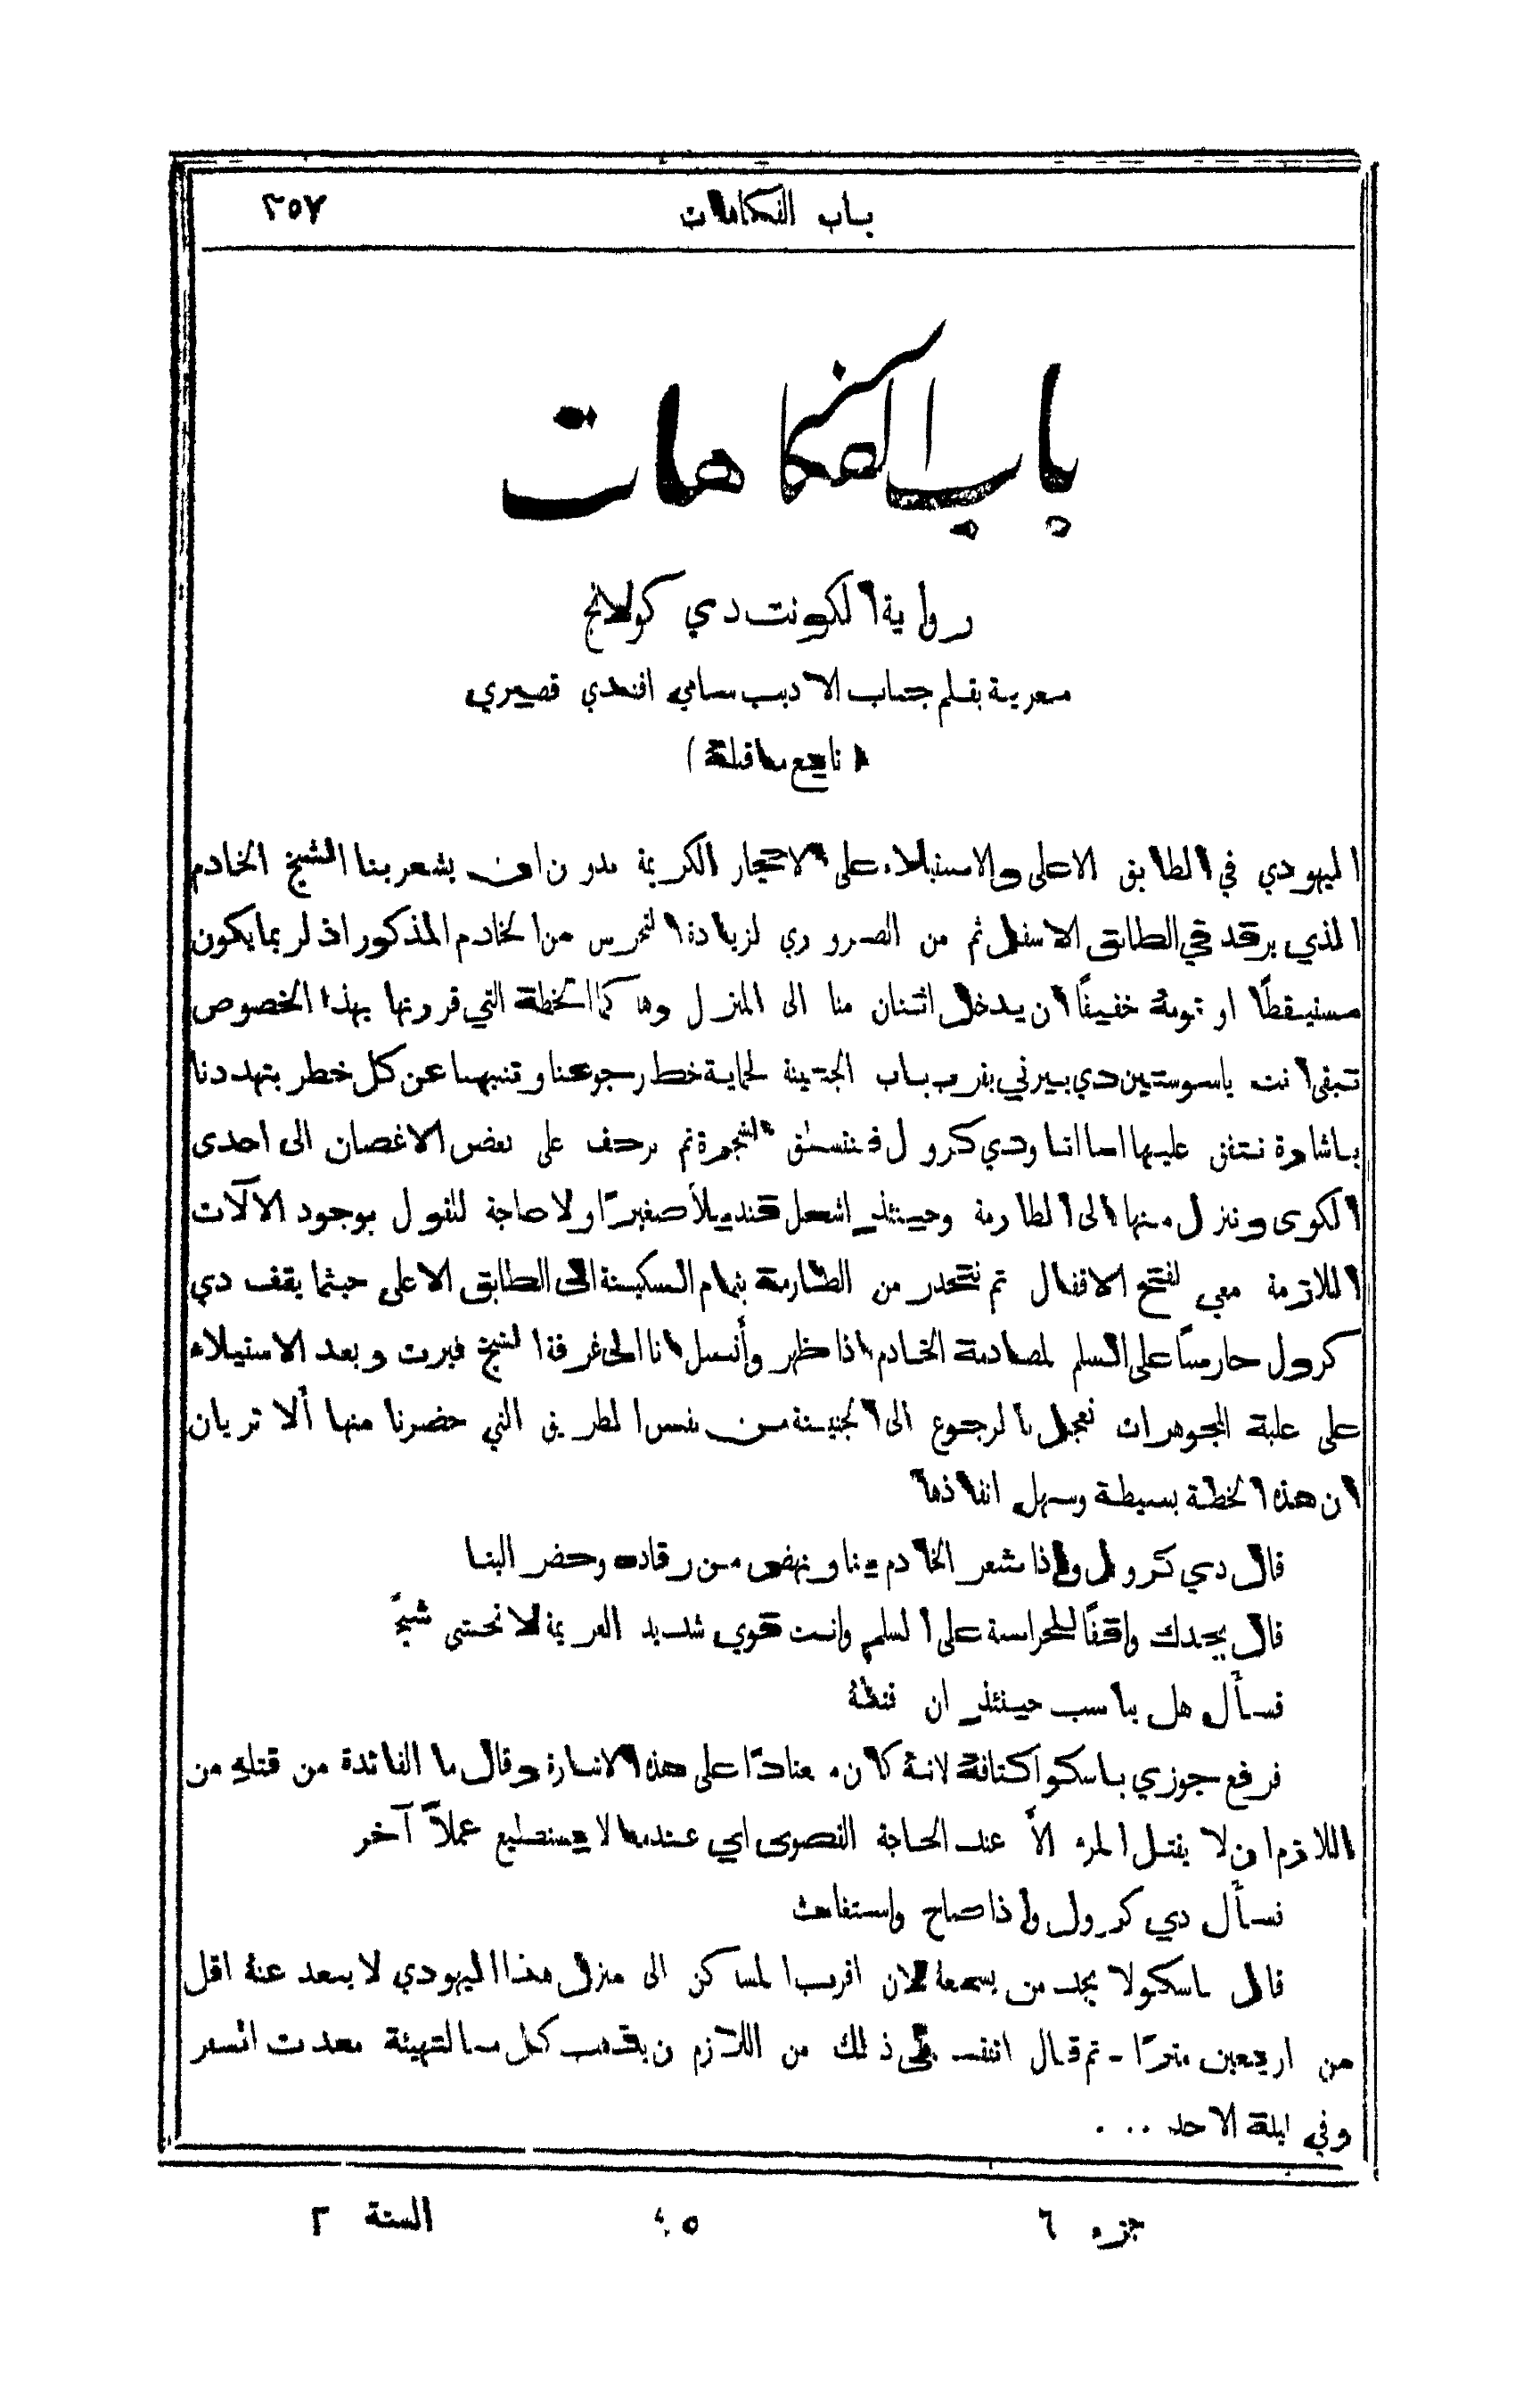 باب الفكاهات ٣٥٧
باب الفكاهات
رواية الكونت دي كولانج
معربة بقلم جناب الاديب سامي افندي قصيري
( تابع ما قبله )
اليهودي في الطابق الاعلى والاستيلاء على الاحجار الكريمة بدون ان يشعر بنا الشيخ الخادم
الذي يرقد في الطابق الاسفل ثم من الضروري لزيادة التحرس من الخادم المذكور اذ لربما يكون
مستيقظًا او نومه خفيفًا ان يدخل اثنان منا الى المنزل وهاكما الخطة التي قررتها بهذا الخصوص
تبقى انت ياسوستين دي بيرني بقرب باب الجنينة لحماية خط رجوعنا وتنبهنا عن كل خطر يتهددنا
باشارة نتفق عليها اما انا ودي كرول فنتسلق الشجرة ثم نزحف على بعض الاغصان الى احدى
الكوى وننزل منها الى الطارمة وحينئذٍ اشعل قنديلاً صغيرًا ولا حاجة للقول بوجود الآلات
اللازمة معي لفتح الاقفال ثم ننحدر من الطارمة بتمام السكينة الى الطابق الاعلى حيثما يقف دي
كرول حارسًا على السلم لمصادمة الخادم اذا ظهر وأنسل انا الى غرفة الشيخ فبرت وبعد الاستيلاء
على علبة المجوهرات نعجل بالرجوع الى الجنينة من نفس الطريق التي حضرنا منها ألا تريان
ان هذه الخطة بسيطة وسهل انفاذها
قال دي كرول واذا شعر الخادم بنا ونهض من رقاده وحضر الينا
قال يجدك واقفًا للحراسة على السلم وانت قوي شديد العزيمة لا تخشى شيئًا
فسأل هل يناسب حينئذٍ ان نقتلهُ
فرفع جوزي باسكو اكتافهُ لانهُ كان معتادًا على هذه الاشارة وقال ما الفائدة من قتله من
اللازم ان لا يقتل المرء الاَّ عند الحاجة القصوى اي عندما لا يستطيع عملاً آخر
فسأل دي كرول واذا صاح واستغاث
قال باسكو لا يجد من يسمعهُ لان اقرب المساكن الى منزل هذا اليهودي لا يبعد عنهُ اقل
من اربعين مترًا - ثم قال اننفد ذلك من اللازم يذهب كل منا لتهيئة معدات السفر
وفي ليلة الاحد ...
جزء ٦ ٤٥ السنة ٢